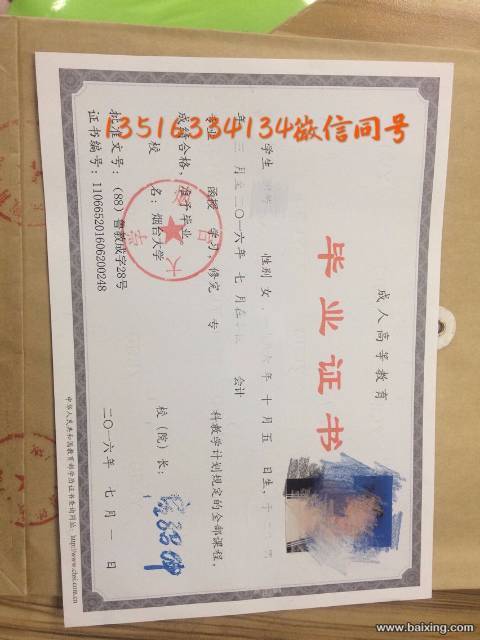 13516354134微信同号
成人高等教育
毕业证书
学生 性别 女, 年 十 月 五 日生,于
年 三 月至二〇一六年 七 月在 会计
专业 函授 学习,修完 专 科教学计划规定的全部课程,
成绩合格,准予毕业
校 名:烟台大学 校(院)长:
批准文号:(88)鲁教成字28号
证书编号:110665201606200248 二〇一六年 七 月 一 日
中华人民共和国教育部学历证书查询网站:http://www.chsi.com.cn
www.baixing.com